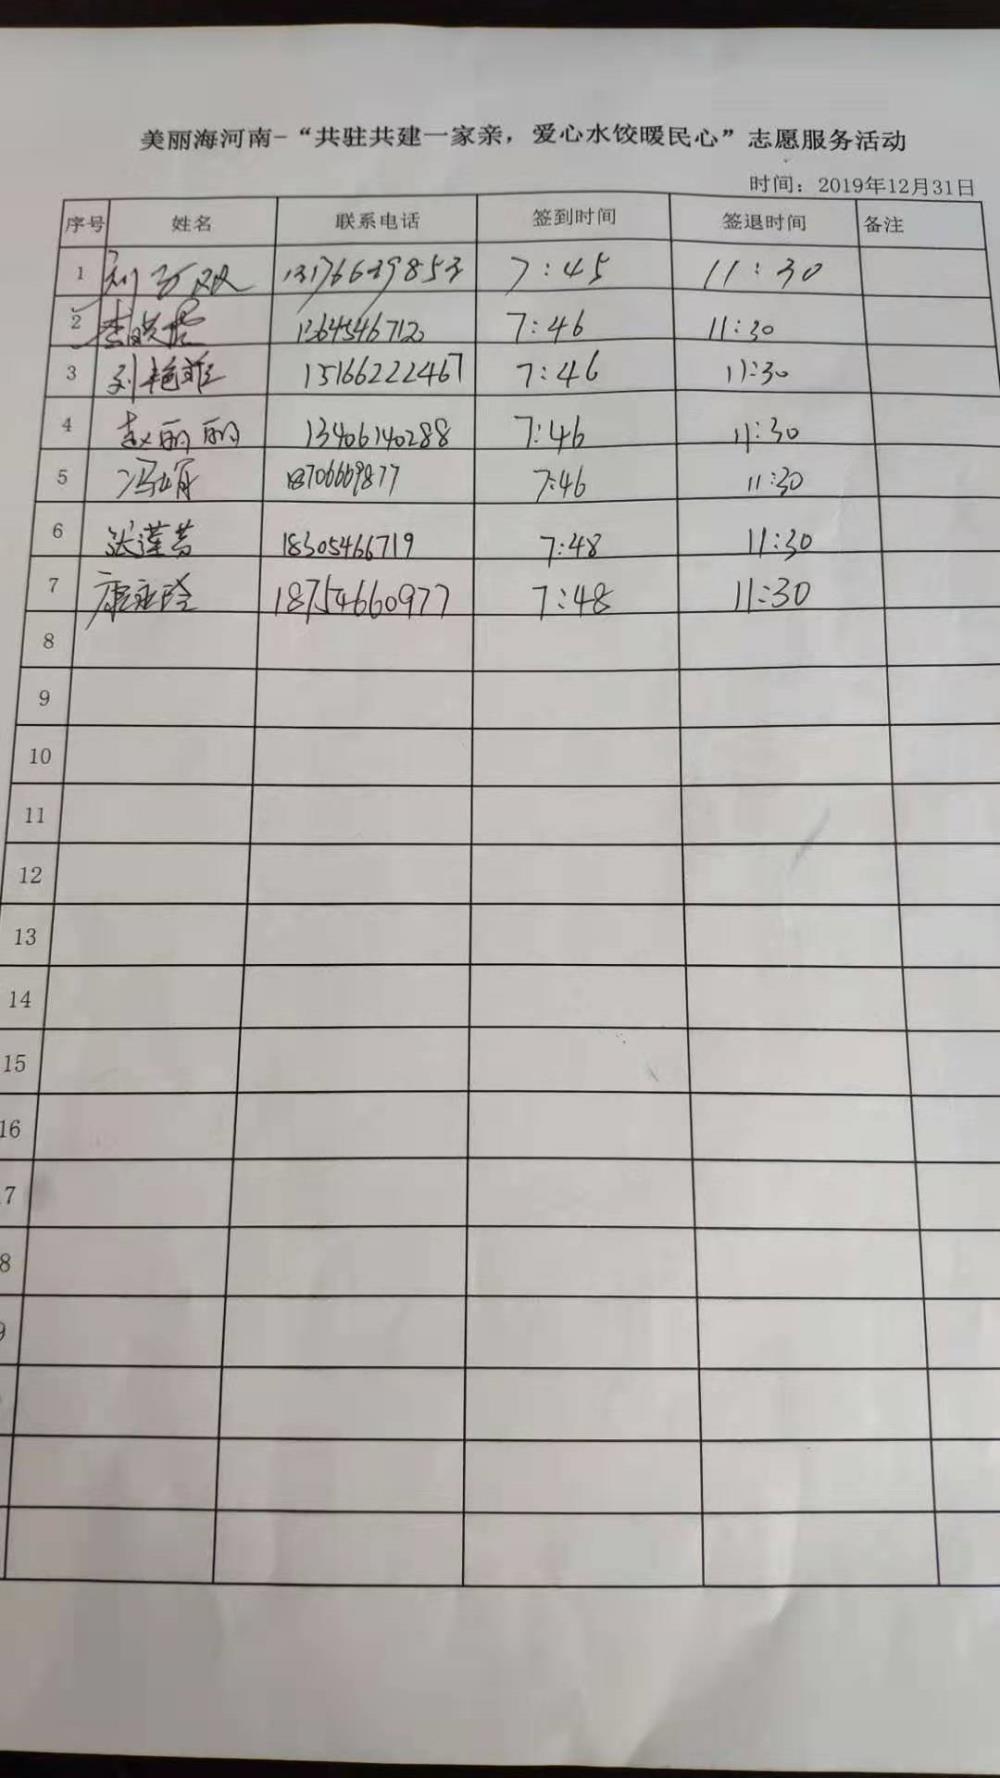 美丽海河南-“共驻共建一家亲，爱心水饺暖民心”志愿服务活动
时间：2019年12月31日
序号 姓名 联系电话 签到时间 签退时间 备注
1 刘 13176639853 7:45 11:30
2 李 13645467120 7:46 11:30
3 刘艳菲 15166222467 7:46 11:30
4 赵丽丽 13406140288 7:46 11:30
5 冯娟 18706669877 7:46 11:30
6 张莲芳 18305466719 7:48 11:30
7 康永玲 18754660977 7:48 11:30
8
9
10
11
12
13
14
15
16
7
8
9